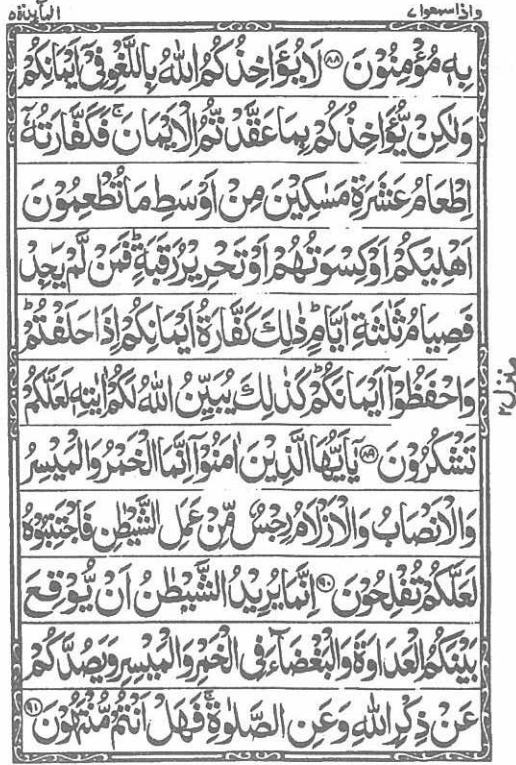 واذاسمعوا ٧
المآىِٕدة ٥
بِهٖ مُؤْمِنُوْنَ ﴿۸۸﴾ لَا يُؤَاخِذُكُمُ اللّٰهُ بِاللَّغْوِ فِيْۤ اَيْمَانِكُمْ
وَلٰكِنْ يُّؤَاخِذُكُمْ بِمَا عَقَّدْتُّمُ الْاَيْمَانَ ۚ فَكَفَّارَتُهٗۤ
اِطْعَامُ عَشَرَةِ مَسٰكِيْنَ مِنْ اَوْسَطِ مَا تُطْعِمُوْنَ
اَهْلِيْكُمْ اَوْ كِسْوَتُهُمْ اَوْ تَحْرِيْرُ رَقَبَةٍ ؕ فَمَنْ لَّمْ يَجِدْ
فَصِيَامُ ثَلٰثَةِ اَيَّامٍ ؕ ذٰلِكَ كَفَّارَةُ اَيْمَانِكُمْ اِذَا حَلَفْتُمْ ؕ
وَاحْفَظُوْۤا اَيْمَانَكُمْ ؕ كَذٰلِكَ يُبَيِّنُ اللّٰهُ لَكُمْ اٰيٰتِهٖ لَعَلَّكُمْ
تَشْكُرُوْنَ ﴿۸۹﴾ يٰۤاَيُّهَا الَّذِيْنَ اٰمَنُوْۤا اِنَّمَا الْخَمْرُ وَالْمَيْسِرُ
وَالْاَنْصَابُ وَالْاَزْلَامُ رِجْسٌ مِّنْ عَمَلِ الشَّيْطٰنِ فَاجْتَنِبُوْهُ
لَعَلَّكُمْ تُفْلِحُوْنَ ﴿۹۰﴾ اِنَّمَا يُرِيْدُ الشَّيْطٰنُ اَنْ يُّوْقِعَ
بَيْنَكُمُ الْعَدَاوَةَ وَالْبَغْضَآءَ فِي الْخَمْرِ وَالْمَيْسِرِ وَيَصُدَّكُمْ
عَنْ ذِكْرِ اللّٰهِ وَعَنِ الصَّلٰوةِ ۚ فَهَلْ اَنْتُمْ مُّنْتَهُوْنَ ﴿۹۱﴾
منزل ۲